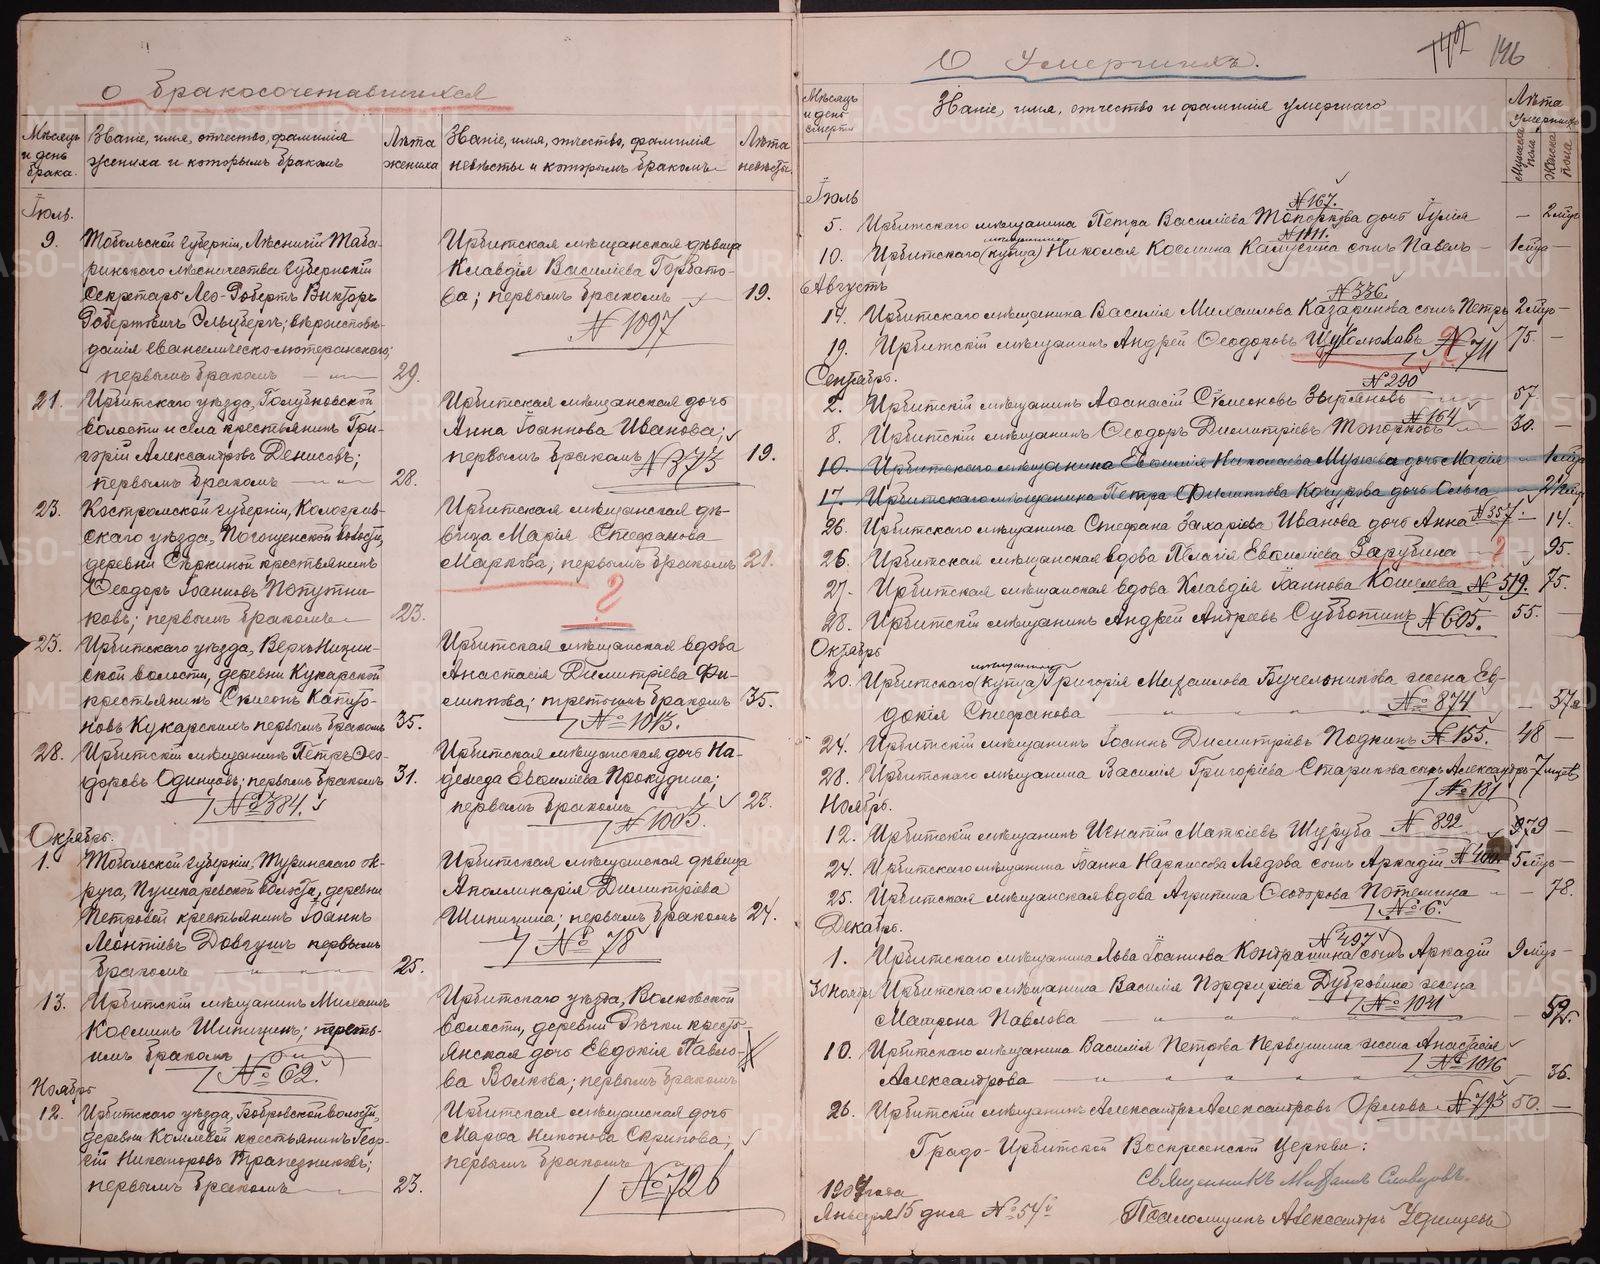 О бракосочетавшихся
Мѣсяцъ и день брака.
Званіе, имя, отчество, фамилія жениха и которымъ бракомъ
Лѣта жениха
Званіе, имя, отчество, фамилія невѣсты и которымъ бракомъ
Лѣта невѣсты.
Іюль.
9. Тобольской губерніи, Лѣсничій Таба-
ринскаго лѣсничества Губернскій
Секретарь Лео-Робертъ Викторъ
Робертовичъ Эльцбергъ; вѣроисповѣ-
данія евангелическо-лютеранскаго;
первымъ бракомъ 29.
Ирбитская мѣщанская дѣвица
Клавдія Василіева Горбато-
ва; первымъ бракомъ 19.
№ 1097
21. Ирбитскаго уѣзда, Голубковской
волости и села крестьянинъ Гри-
горій Александровъ Денисовъ;
первымъ бракомъ 28.
Ирбитская мѣщанская дочь
Анна Іоаннова Иванова;
первымъ бракомъ № 373 19.
23. Костромской губерніи, Кологрив-
скаго уѣзда, волости,
деревни крестьянинъ
Ѳеодоръ Іоанновъ Попутни-
ковъ; первымъ бракомъ 23.
Ирбитская мѣщанская дѣ-
вица Марія Стефанова
Маркова; первымъ бракомъ 21.
?
25. Ирбитскаго уѣзда, Верхъ-Ницин-
ской волости, деревни Кукарской
крестьянинъ Симеонъ
Кукарскихъ первымъ бракомъ 35.
Ирбитская мѣщанская вдова
Анастасія Димитріева Фи-
липпова; третьимъ бракомъ 35.
№ 1013.
28. Ирбитскій мѣщанинъ Петръ Ѳео-
доровъ Одинцовъ; первымъ бракомъ 31.
№ 384.
Ирбитская мѣщанская дочь На-
дежда Евѳиміева Прокудина;
первымъ бракомъ 23.
№ 1003.
Октябрь.
1. Тобольской губерніи, Туринскаго ок-
руга, Пушкаревской волости, деревни
Петровой крестьянинъ Іоаннъ
Леонтіевъ Довгунъ первымъ
бракомъ 25.
Ирбитская мѣщанская дѣвица
Аполлинарія Димитріева
Шипицина; первымъ бракомъ 24.
№ 78
13. Ирбитскій мѣщанинъ Михаилъ
Косминъ Шипицинъ; треть-
имъ бракомъ
№ 62.
Ирбитскаго уѣзда, Волковской
волости, деревни Рѣчки кресть-
янская дочь Евдокія Павло-
ва Волкова; первымъ бракомъ
Ноябрь
12. Ирбитскаго уѣзда, Бобровской волости,
деревни крестьянинъ Геор-
гій Никаноровъ Трапезниковъ;
первымъ бракомъ 23.
Ирбитская мѣщанская дочь
Марѳа Никонова Скрипова;
первымъ бракомъ
№ 726
О Умершихъ.
142 146
Мѣсяцъ и день смерти
Званіе, имя, отчество и фамилія умершаго
Лѣта умершихъ
Мужска пола
Женска пола
Іюль
№ 167.
5. Ирбитскаго мѣщанина Петра Василіева Топоркова дочь Іулія — 2 мѣс
№ 1111.
мѣщанина
10. Ирбитскаго (купца) Николая Космина Калугина сынъ Павелъ — 1 мѣс —
Августъ
№ 336.
14. Ирбитскаго мѣщанина Василія Михаилова Казаринова сынъ Петръ 2 мѣс —
19. Ирбитскій мѣщанинъ Андрей Ѳеодоровъ № 711 75. —
Сентябрь.
№ 290
2. Ирбитскій мѣщанинъ Аѳанасій Сѵмеоновъ Зыряновъ 57.
№ 164
8. Ирбитскій мѣщанинъ Ѳеодоръ Димитріевъ Топорковъ 30. —
10. Ирбитскаго мѣщанина Евѳимія Николаева дочь Марія — 1 мѣс
17. Ирбитскаго мѣщанина Петра Филиппова Кочурова дочь Ольга
26. Ирбитскаго мѣщанина Стефана Захаріева Иванова дочь Анна № 357. — 14.
26. Ирбитская мѣщанская вдова Пелагія Евѳиміева Зарубина ? — 95.
27. Ирбитская мѣщанская вдова Клавдія Іоаннова Кошелева № 519. 75.
28. Ирбитскій мѣщанинъ Андрей Андреевъ Субботинъ № 605. 55. —
Октябрь
мѣщанина
20. Ирбитскаго (купца) Григорія Михаилова Бучельникова жена Ев-
докія Стефанова № 874 — 57
24. Ирбитскій мѣщанинъ Іоаннъ Димитріевъ Подкинъ № 155. 48 —
28. Ирбитскаго мѣщанина Василія Григоріева Старикова сынъ Александръ
№ 181
Ноябрь.
12. Ирбитскій мѣщанинъ Игнатій Матѳіевъ Шуруба № 892 79 —
24. Ирбитскаго мѣщанина Іоанна Наркисова Лядова сынъ Аркадій № 400. 5 мѣс —
25. Ирбитская мѣщанская вдова Агрипина Ѳеодорова Потемина — 78.
№ 6.
Декабрь.
№ 497
1. Ирбитскаго мѣщанина Льва Іоаннова Кондрашина сынъ Аркадій 9 мѣс —
30 Ноября Ирбитскаго мѣщанина Василія Порфиріева Дубровина жена
№ 1041
Матрона Павлова — 59.
10. Ирбитскаго мѣщанина Василія Петрова Первушина жена Анастасія
№ 1016
Александрова — 36.
26. Ирбитскій мѣщанинъ Александръ Александровъ Орловъ № 793 50. —
Градо-Ирбитской Воскресенской церкви:
Священникъ Михаилъ Словцовъ.
1904 года
Января 15 дня № 54
Псаломщикъ Александръ Удинцевъ
METRIKI.GASO-URAL.RU